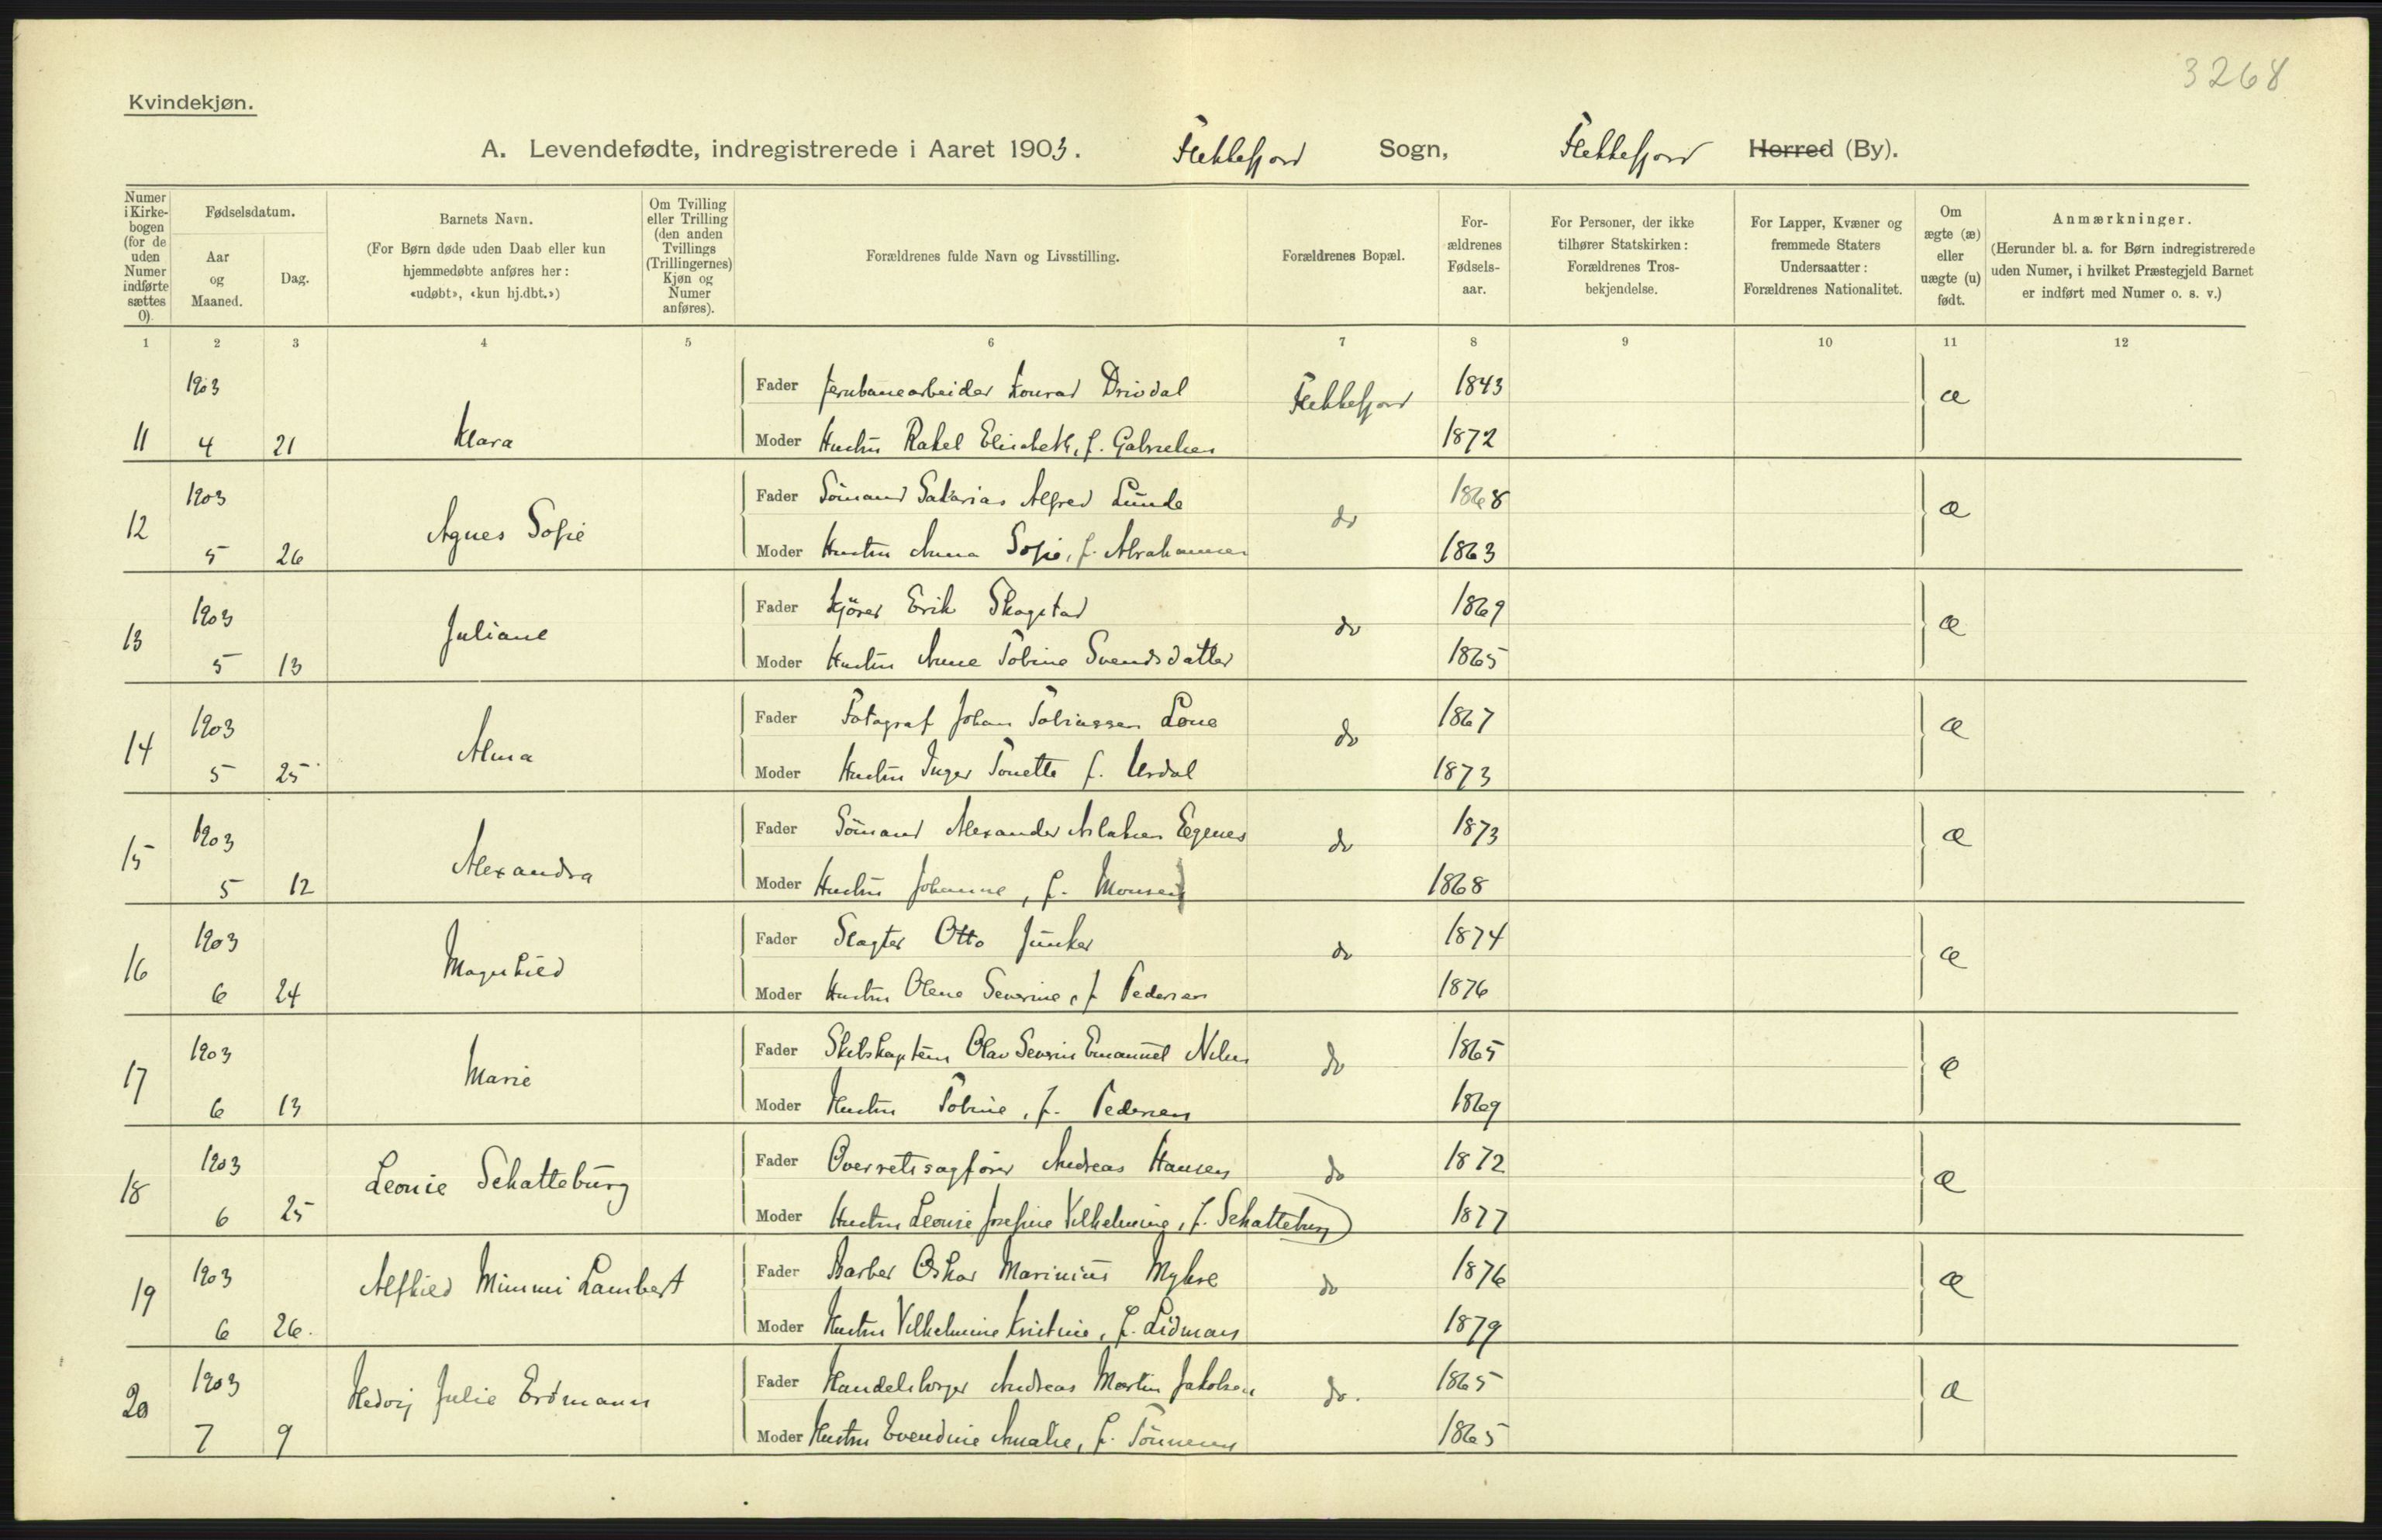 3268
Kvindekjøn.
A. Levendefødte, indregistrerede i Aaret 1903. Flekkefjord Sogn, Flekkefjord Herred (By).
Numer i Kirke-bogen (for de uden Numer indførte sættes 0).
Fødselsdatum.
Aar og Maaned.
Dag.
Barnets Navn.
(For Børn døde uden Daab eller kun hjemmedøbte anføres her: «udøbt», «kun hj.dbt.»)
Om Tvilling eller Trilling (den anden Tvillings (Trillingernes) Kjøn og Numer anføres).
Forældrenes fulde Navn og Livsstilling.
Forældrenes Bopæl.
For-ældrenes Fødsels-aar.
For Personer, der ikke tilhører Statskirken: Forældrenes Tros-bekjendelse.
For Lapper, Kvæner og fremmede Staters Undersaatter: Forældrenes Nationalitet.
Om ægte (æ) eller uægte (u) født.
Anmærkninger.
(Herunder bl. a. for Børn indregistrerede uden Numer, i hvilket Præstegjeld Barnet er indført med Numer o. s. v.)
1 2 3 4 5 6 7 8 9 10 11 12
1903 Fader Jernbanearbeider Konrad Drivdal Flekkefjord 1843 æ
11 4 21 Klara Moder Hustru Rakel Elisabeth, f. Gabrielsen 1872
1903 Fader Sömand Sakarias Alfred Lunde do 1868 æ
12 5 26 Agnes Sofie Moder Hustru Anna Sofie, f. Abrahamsen 1863
1903 Fader Kjörer Erik Skogstad do 1869 æ
13 5 13 Juliane Moder Hustru Anne Tobine Svendsdatter 1865
1903 Fader Fotograf Johan Tobiassen Lone do 1867 æ
14 5 25 Alma Moder Hustru Inger Tonette f. Urdal 1873
1903 Fader Sömand Alexander Aslaksen Egenes do 1873 æ
15 5 12 Alexandra Moder Hustru Johanne, f. Monsen 1868
1903 Fader Slagter Otto Junker do 1874 æ
16 6 24 Magnhild Moder Hustru Olene Severine, f. Pedersen 1876
1903 Fader Skibskaptein Olav Severin Emanuel Nilsen do 1865 æ
17 6 13 Marie Moder Hustru Tobine, f. Pedersen 1869
1903 Fader Overretssagförer Andreas Hansen do 1872 æ
18 6 25 Leonie Schatteburg Moder Hustru Leonie Josefine Vilhelmine, f. Schatteburg 1877
1903 Fader Barber Oskar Marinius Myhre do 1876 æ
19 6 26. Alfhild Mimmi Lambert Moder Hustru Vilhelmine Kristine, f. Lidman 1879
1903 Fader Handelsborger Andreas Martin Jakobsen do. 1865 æ
20 7 9 Hedvig Julie Erdmann Moder Hustru Evendine Amalie, f. Tönnesen 1865